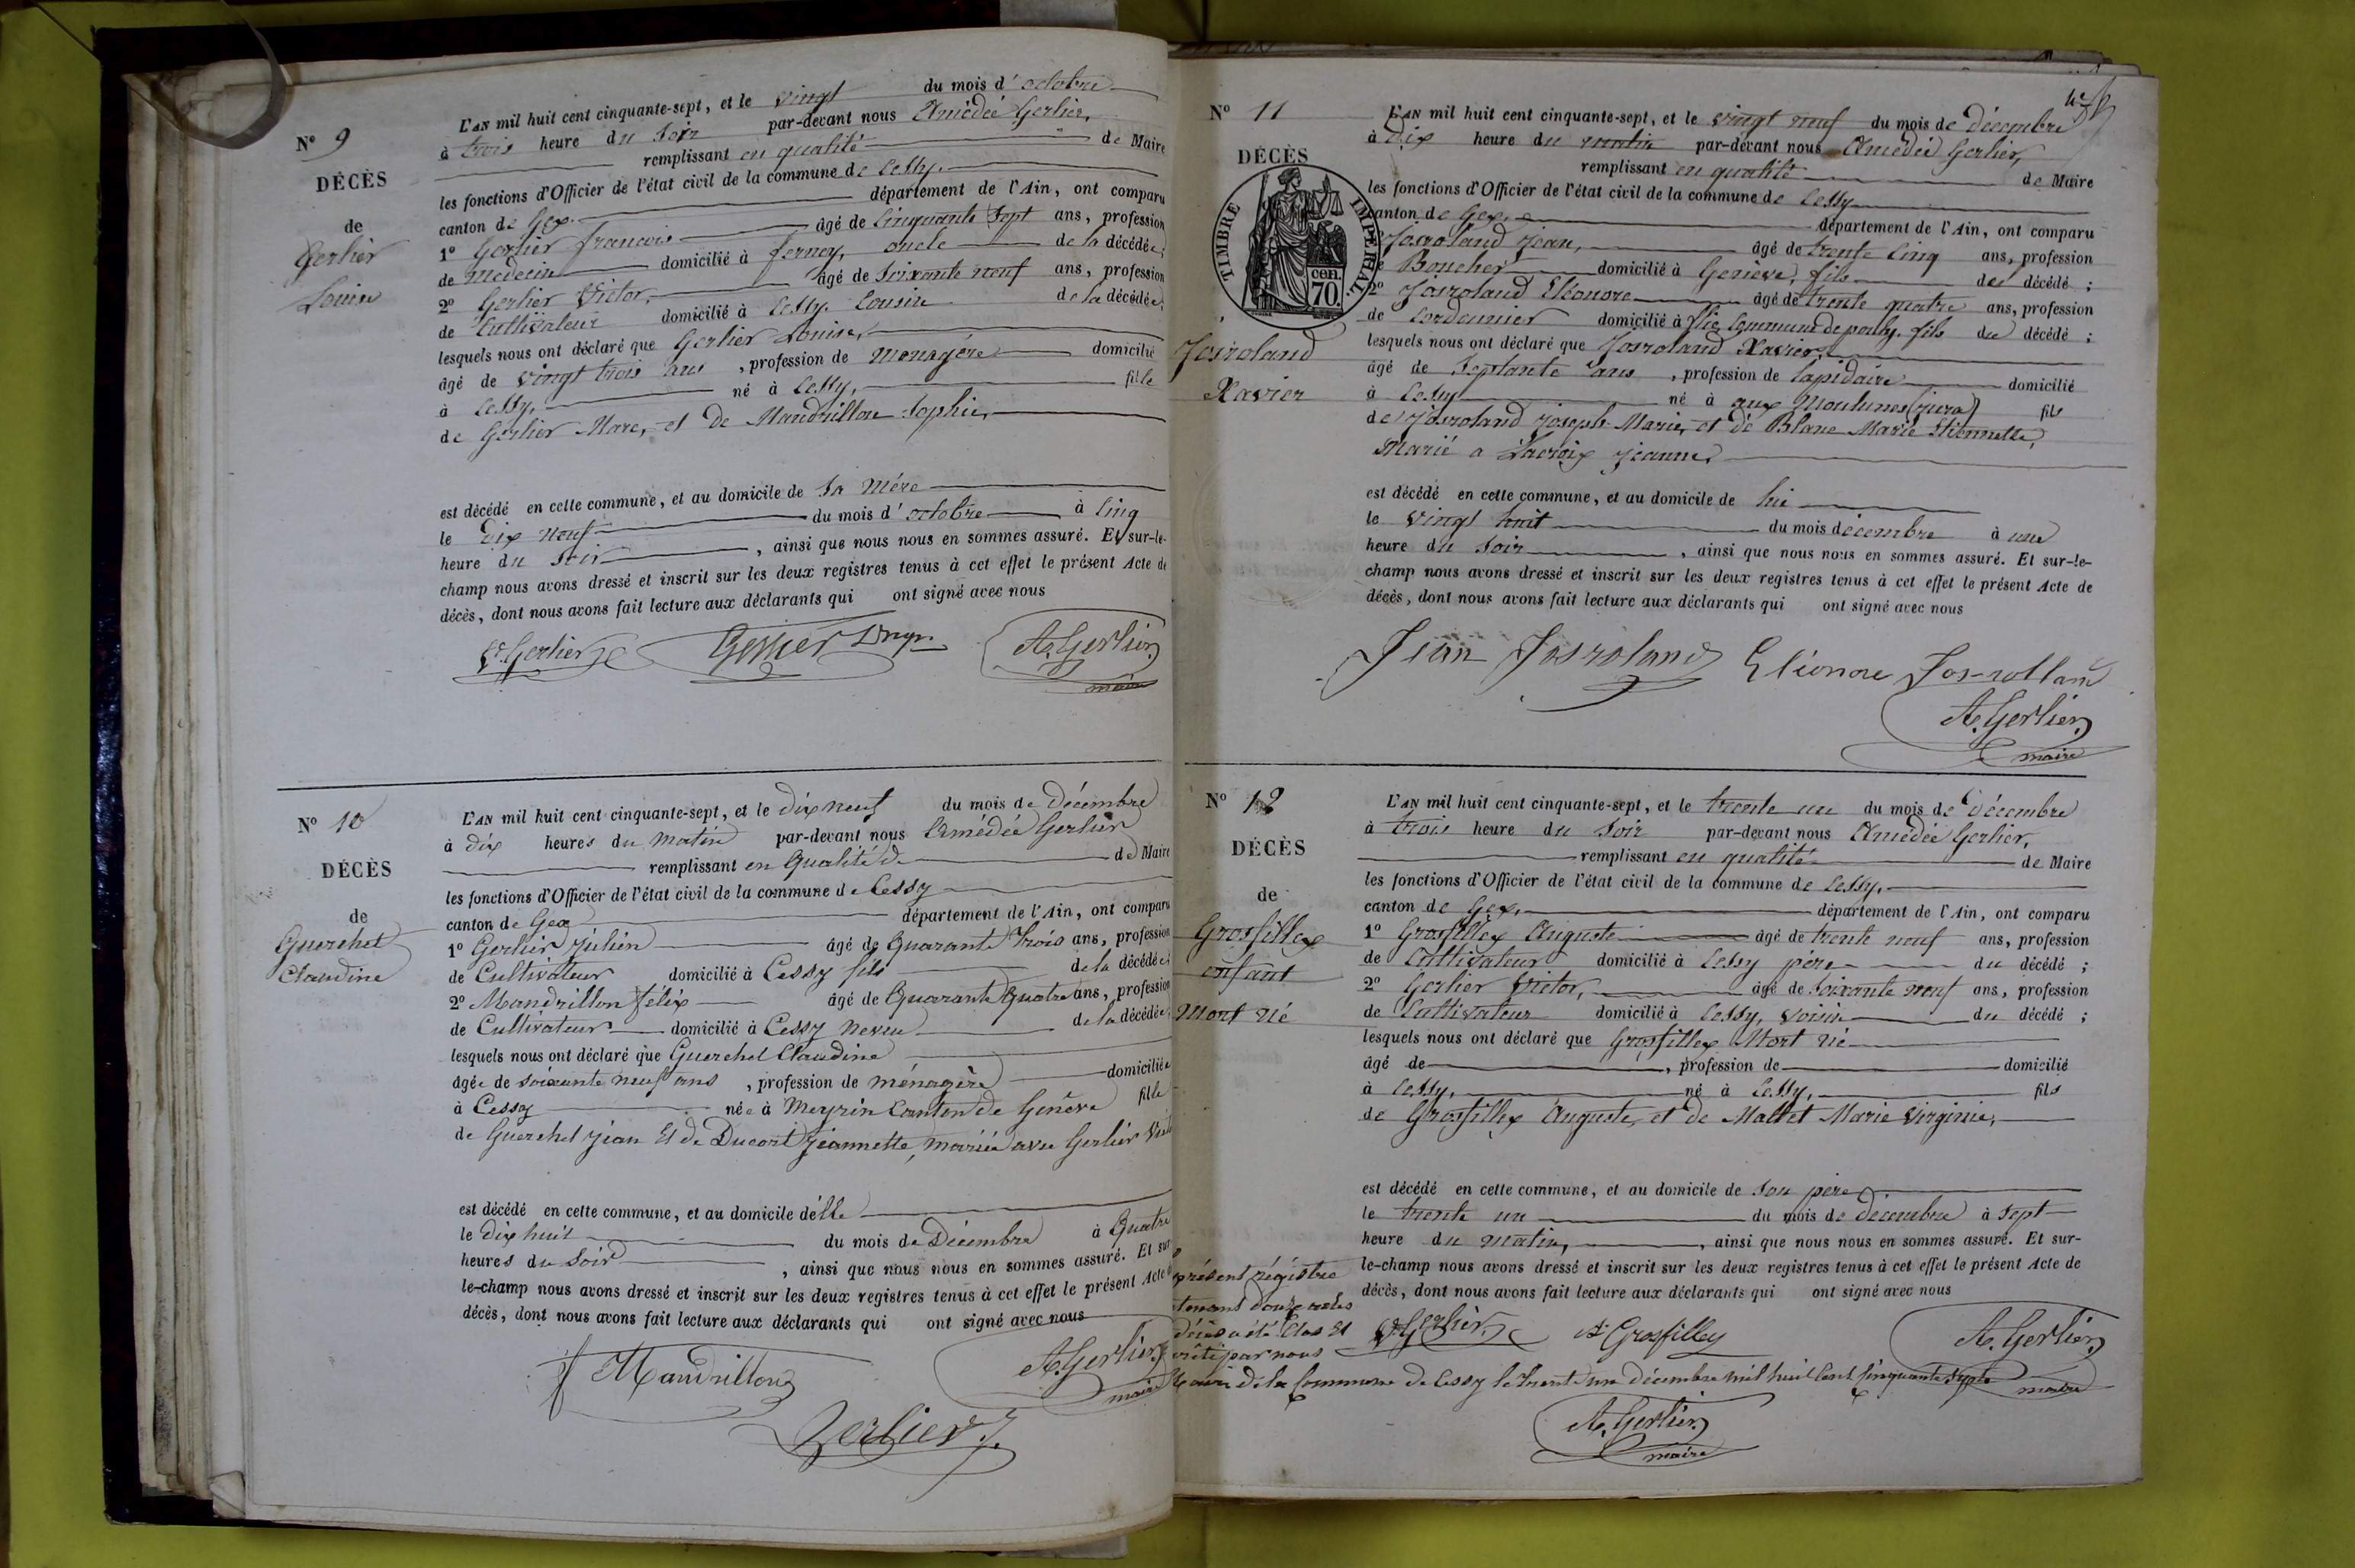 N° 9
DÉCÈS
de
Gerlier
Louise
L'AN mil huit cent cinquante-sept, et le vingt du mois d'octobre
à trois heure du soir par-devant nous Amédée Gerlier,
remplissant en qualité de Maire
les fonctions d'Officier de l'état civil de la commune de Cessy.
canton de Gex. département de l'Ain, ont comparu
1° Gerlier francois âgé de Cinquante Sept ans, profession
de medecin domicilié à ferney, oncle de la décédée;
2° Gerlier Victor, âgé de Soixante neuf ans, profession
de Cultivateur domicilié à Cessy. Cousin de la décédée;
lesquels nous ont déclaré que Gerlier Louise,
âgé de vingt trois ans, profession de menagère domicilié
à Cessy, né à Cessy, fille
de Gerlier Marc, et de Mandrillon Sophie,
est décédé en cette commune, et au domicile de sa Mére
le Dix neuf du mois d'octobre à Cinq
heure du soir, ainsi que nous nous en sommes assuré. Et sur-le-
champ nous avons dressé et inscrit sur les deux registres tenus à cet effet le présent Acte de
décès, dont nous avons fait lecture aux déclarants qui ont signé avec nous
Vr. Gerlier Gerlier A. Gerlier
maire
N° 10
DÉCÈS
de
Guerchet
Claudine
L'AN mil huit cent cinquante-sept, et le dix neuf du mois de Décembre
à dix heures du matin par-devant nous Amédée Gerlier
remplissant en Qualité de de Maire
les fonctions d'Officier de l'état civil de la commune de Cessy
canton de Gex département de l'Ain, ont comparu
1° Gerlier Julien âgé de Quarante Trois ans, profession
de Cultivateur domicilié à Cessy fils de la décédée;
2° Mandrillon félix âgé de Quarante Quatre ans, profession
de Cultivateur domicilié à Cessy neveu de la décédée;
lesquels nous ont déclaré que Guerchet Claudine
âgée de soixante neuf ans, profession de ménagère domiciliée
à Cessy née à Meyrin Canton de Genève fille
de Guerchet Jean Et de Ducort Jeannette, mariée avec Gerlier
est décédé en cette commune, et au domicile d'Elle
le Dix huit du mois de Décembre à Quatre
heures du Soir, ainsi que nous nous en sommes assuré. Et sur
le-champ nous avons dressé et inscrit sur les deux registres tenus à cet effet le présent Acte
décès, dont nous avons fait lecture aux déclarants qui ont signé avec nous
f Mandrillon A. Gerlier
maire
Gerlier J.
N° 11
DÉCÈS
TIMBRE IMPERIAL
70. cen.
Josroland
Xavier
L'AN mil huit cent cinquante-sept, et le vingt neuf du mois de décembre
à Dix heure du matin par-devant nous Amédée Gerlier,
remplissant en qualité de Maire
les fonctions d'Officier de l'état civil de la commune de Cessy
canton de Gex. département de l'Ain, ont comparu
Josroland Jean, âgé de trente Cinq ans, profession
Boucher domicilié à Genève, fils du décédé;
2° Josroland Eléonore âgé de trente quatre ans, profession
de Cordonnier domicilié à flie Commune de pouilly. fils du décédé;
lesquels nous ont déclaré que Josroland Xavier
âgé de Septante ans, profession de lapidaire domicilié
à Cessy né à aux Moulunes (jura) fils
de Josroland Joseph Marie, et de Blanc Marie Etiennette,
Marié a Lacroix Jeanne
est décédé en cette commune, et au domicile de lui
le vingt huit du mois décembre à une
heure du soir, ainsi que nous nous en sommes assuré. Et sur-le-
champ nous avons dressé et inscrit sur les deux registres tenus à cet effet le présent Acte de
décès, dont nous avons fait lecture aux déclarants qui ont signé avec nous
Jean Josroland Eléonore Josrolland
A. Gerlier
maire
N° 12
DÉCÈS
de
Grosfillex
enfant
Mort né
L'AN mil huit cent cinquante-sept, et le trente un du mois de décembre
à trois heure du soir par-devant nous Amédée Gerlier,
remplissant en qualité de Maire
les fonctions d'Officier de l'état civil de la commune de Cessy.
canton de Gex. département de l'Ain, ont comparu
1° Grosfillex Auguste âgé de trente neuf ans, profession
de Cultivateur domicilié à Cessy père du décédé;
2° Gerlier Victor, âgé de soixante neuf ans, profession
de Cultivateur domicilié à Cessy, voisin du décédé;
lesquels nous ont déclaré que Grosfillex Mort né
âgé de, profession de domicilié
à Cessy, né à Cessy, fils
de Grosfillex Auguste, et de Maltet Marie Virginie,
est décédé en cette commune, et au domicile de son père
le trente un du mois de décembre à sept
heure du matin, ainsi que nous nous en sommes assuré. Et sur-
le-champ nous avons dressé et inscrit sur les deux registres tenus à cet effet le présent Acte de
décès, dont nous avons fait lecture aux déclarants qui ont signé avec nous
Vr. Gerlier A. Grosfilley A. Gerlier
maire
présent régistre
tenant douze actes
décès a été Clos Et
par nous
Maire de la Commune de Cessy le trente un décembre mil huit Cent Cinquante Sept
A. Gerlier
maire